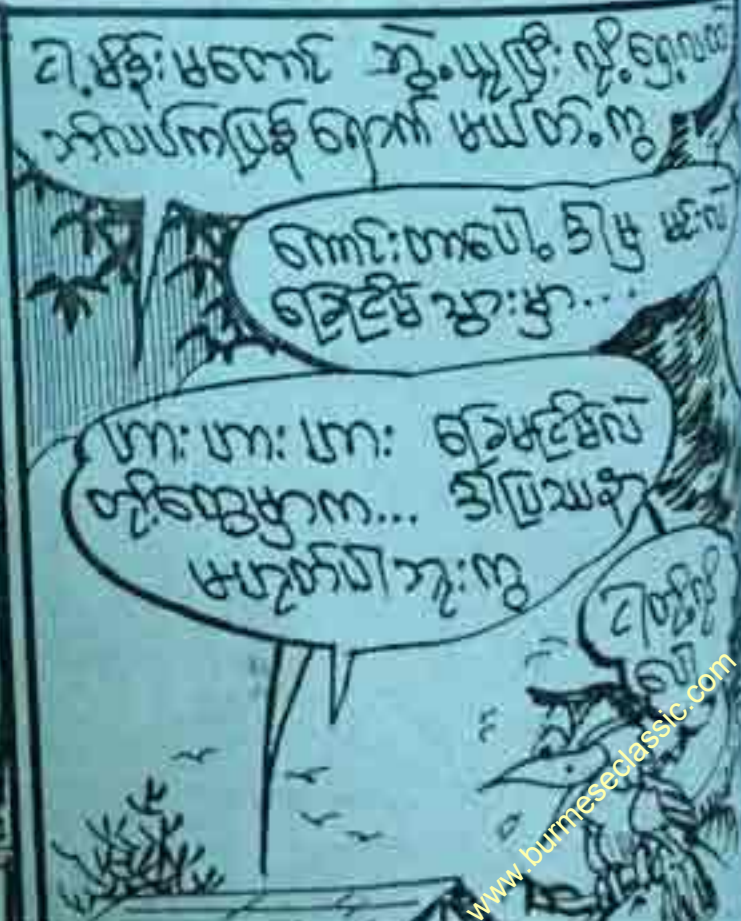 ငါ့မိန်းမတောင် ဘွဲ့ယူပြီးလို့ ရှေ့လထဲ
ဘိလပ်ကပြန်ရောက်မယ်တဲ့ကွ
ကောင်းတာပေါ့ ဒါမှ မင်းလဲ
ခြေငြိမ်သွားမှာ...
ဟား ဟား ဟား ခြေမငြိမ်လဲ
တို့တွေမှာက... ဒါပြဿနာ
မဟုတ်ပါဘူးကွ
ငါတို့လို
ပေါ့
www.burmeseclassic.com